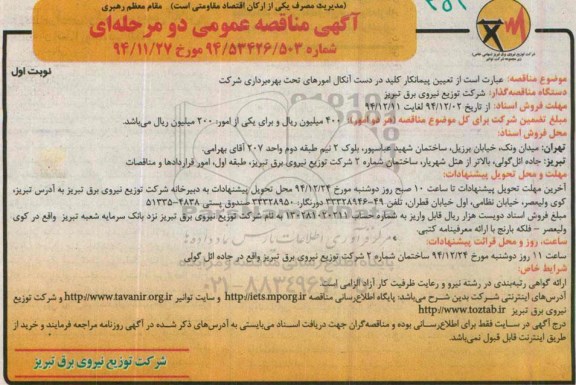 (مدیریت مصرف یکی از ارکان اقتصاد مقاومتی است) مقام معظم رهبری
آگهی مناقصه عمومی دو مرحله‌ای
شماره ۹۴/۵۳۴۲۶/۵۰۳ مورخ ۹۴/۱۱/۲۷
نوبت اول
موضوع مناقصه: عبارت است از تعیین پیمانکار کلید در دست آنکال امورهای تحت بهره‌برداری شرکت
دستگاه مناقصه‌گذار: شرکت توزیع نیروی برق تبریز
مهلت فروش اسناد: از تاریخ ۹۴/۱۲/۰۲ لغایت ۹۴/۱۲/۱۱
مبلغ تضمین شرکت برای کل موضوع مناقصه (هر دو امور): ۴۰۰ میلیون ریال و برای یکی از امور: ۲۰۰ میلیون ریال می‌باشد.
محل فروش اسناد:
تهران: میدان ونک، خیابان برزیل، ساختمان شهید عباسپور، بلوک ۲ نیم طبقه دوم واحد ۲۰۷ آقای بهرامی.
تبریز: جاده ائل‌گولی، بالاتر از هتل شهریار، ساختمان شماره ۲ شرکت توزیع نیروی برق تبریز، طبقه اول، امور قراردادها و مناقصات
مهلت و محل تحویل پیشنهادات:
آخرین مهلت تحویل پیشنهادات تا ساعت ۱۰ صبح روز دوشنبه مورخ ۹۴/۱۲/۲۴ محل تحویل پیشنهادات به دبیرخانه شرکت توزیع نیروی برق تبریز به آدرس تبریز،
کوی ولیعصر، خیابان نظامی، اول خیابان قطران، تلفن ۴۹-۳۳۳۲۸۹۴۶ دورنگار: ۳۳۳۲۸۹۵۰ صندوق پستی ۴۸۳۸-۵۱۳۳۵
مبلغ فروش اسناد دویست هزار ریال قابل واریز به شماره حساب ۱۳۰۲۸۱۰۲۰۲۱۱ به نام شرکت توزیع نیروی برق تبریز نزد بانک سرمایه شعبه تبریز واقع در کوی
ولیعصر - فلکه بارنج با ارائه معرفینامه کتبی.
ساعت، روز و محل قرائت پیشنهادات:
ساعت ۱۱ روز دوشنبه مورخ ۹۴/۱۲/۲۴ ساختمان شماره ۲ شرکت توزیع نیروی برق تبریز واقع در جاده ائل گولی
شرایط خاص:
ارائه گواهی رتبه‌بندی در رشته نیرو و رعایت ظرفیت کار آزاد الزامی است
آدرس‌های اینترنتی شرکت بدین شرح می‌باشد: پایگاه اطلاع‌رسانی مناقصه http://iets.mporg.ir و سایت توانیر http://www.tavanir.org.ir و شرکت توزیع
نیروی برق تبریز http://www.toztab.ir
درج آگهی در سایت فقط برای اطلاع‌رسانی بوده و مناقصه‌گران جهت دریافت اسناد می‌بایستی به آدرس‌های ذکر شده در آگهی روزنامه مراجعه فرمایند و خرید از
طریق اینترنت قابل قبول نمی‌باشد.
شرکت توزیع نیروی برق تبریز